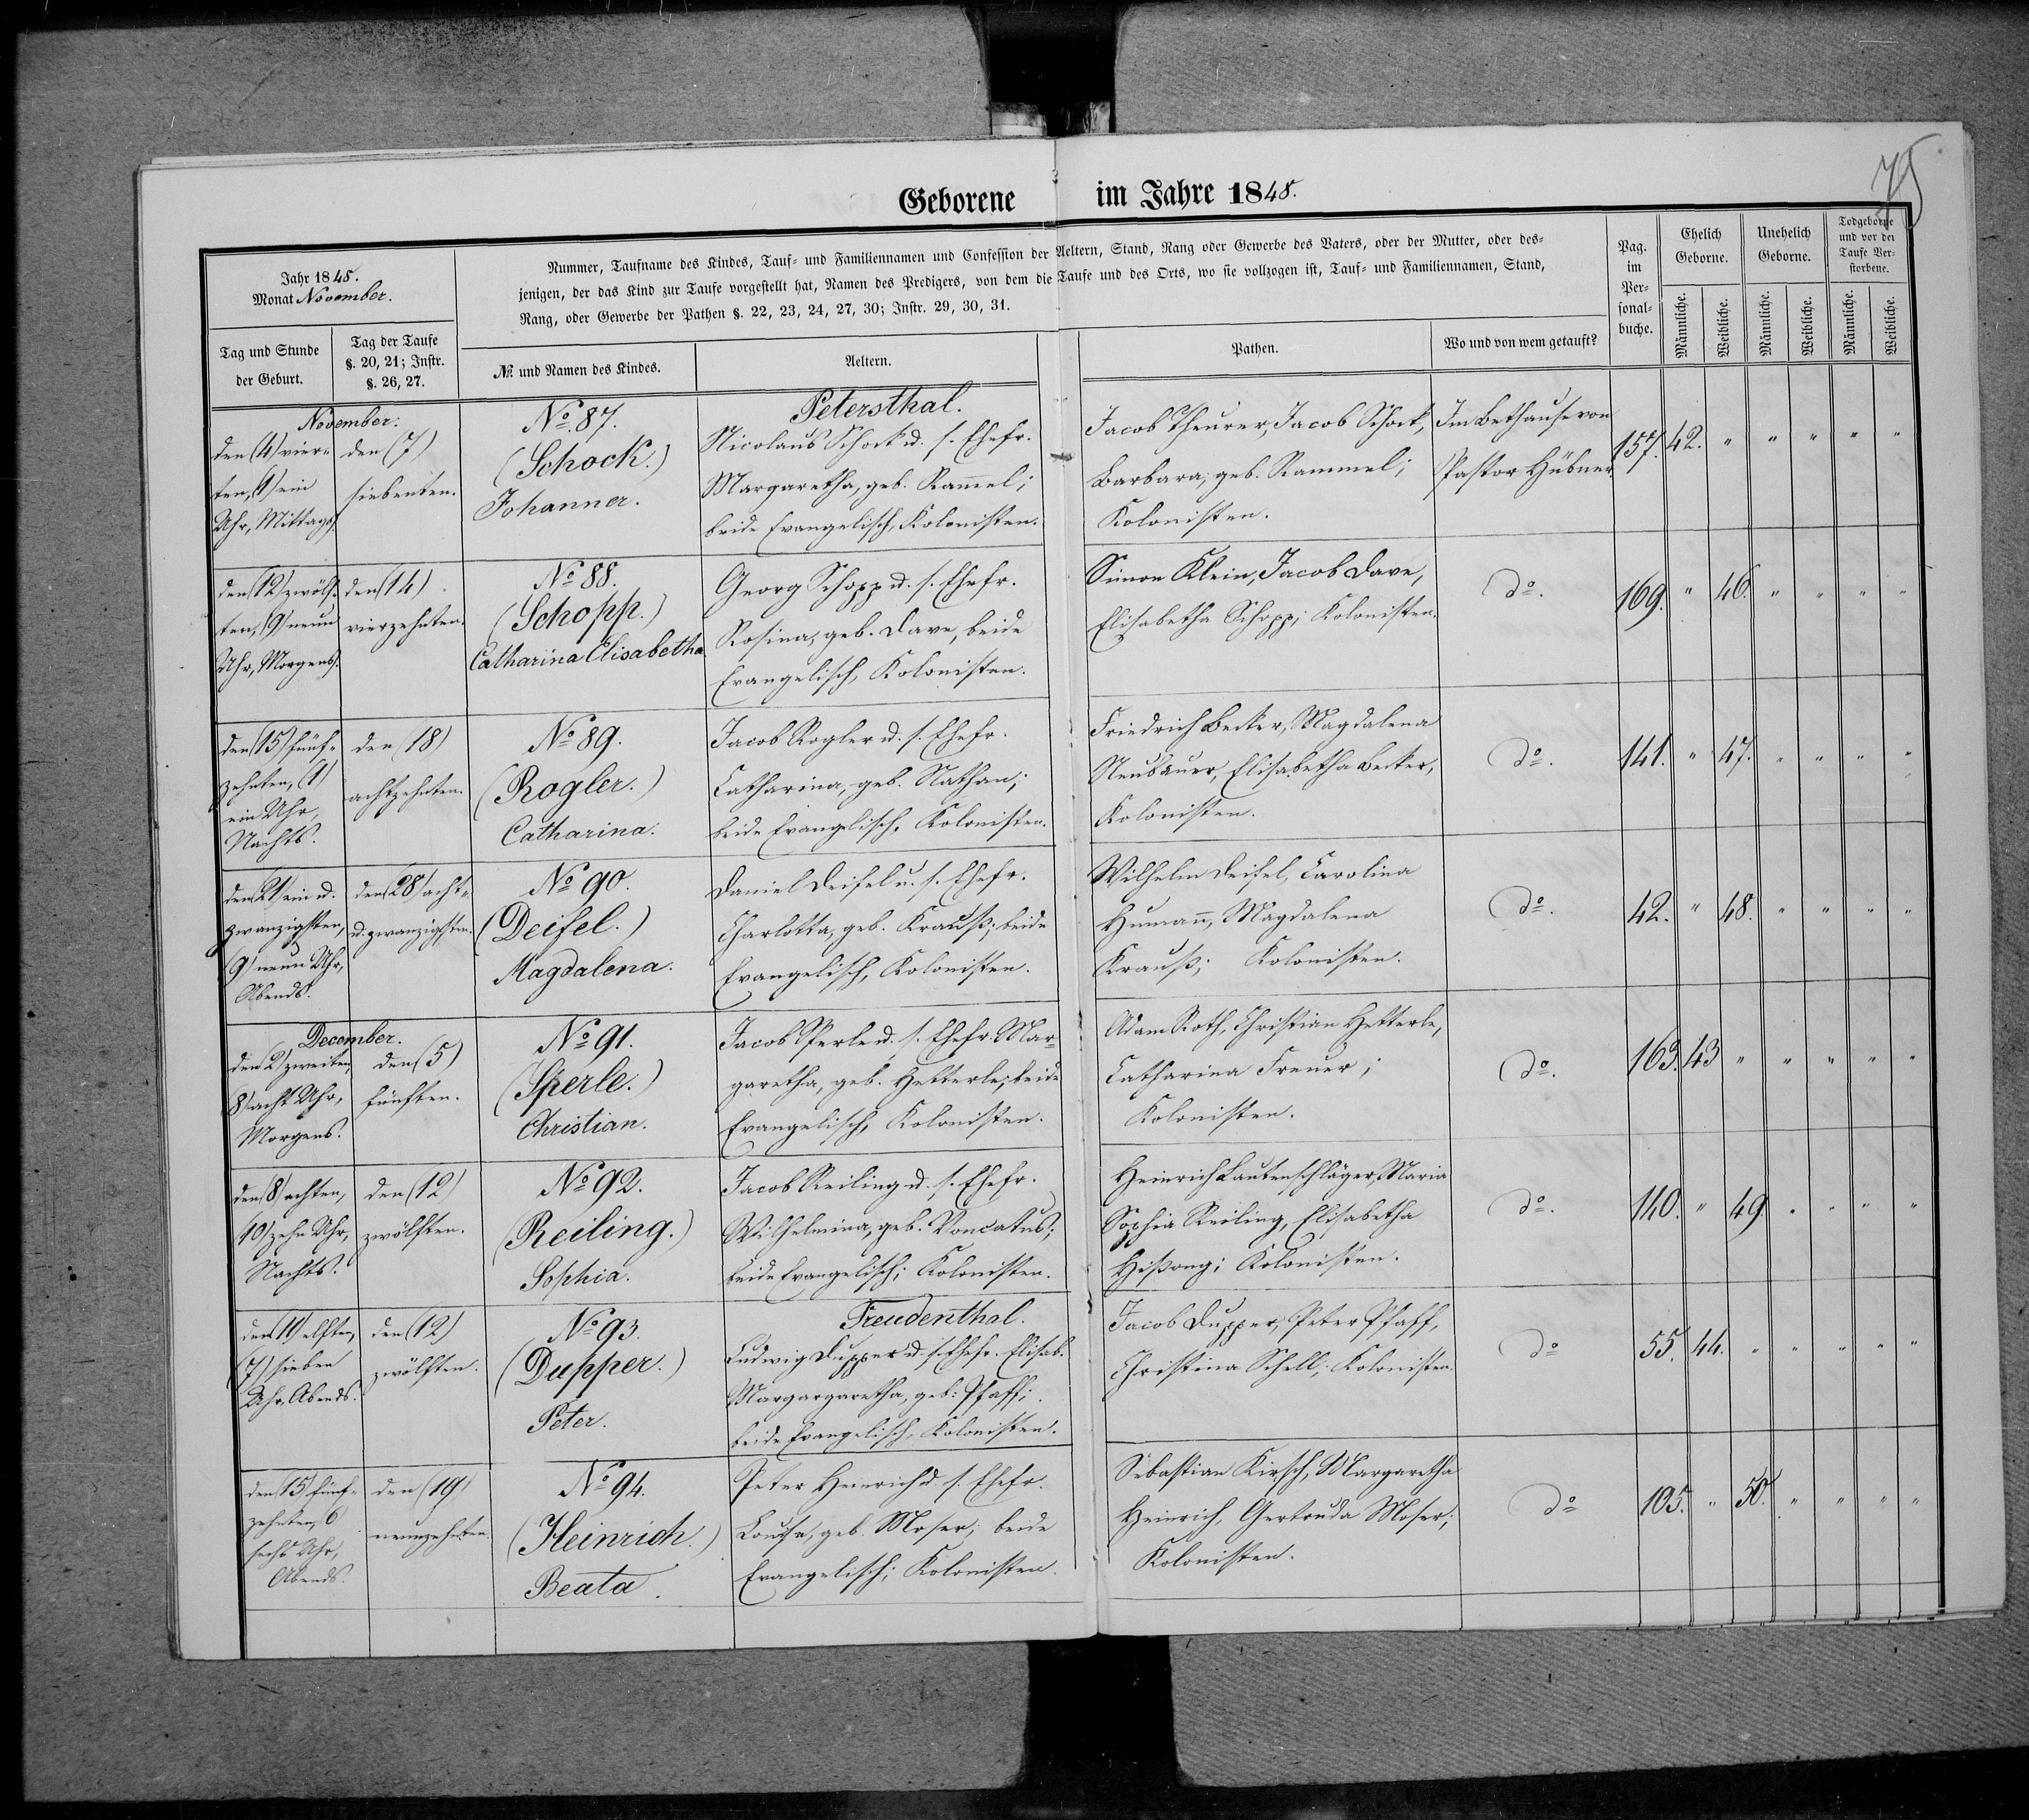 75
Geborene im Jahre 1848.
Jahr 1848.
Monat November.
Tag und Stunde der Geburt.
Tag der Taufe §. 20, 21; Instr. §. 26, 27.
Nummer, Taufname des Kindes, Tauf- und Familiennamen und Confession der Aeltern, Stand, Rang oder Gewerbe des Vaters, oder der Mutter, oder des-
jenigen, der das Kind zur Taufe vorgestellt hat, Namen des Predigers, von dem die Taufe und des Orts, wo sie vollzogen ist, Tauf- und Familiennamen, Stand,
Rang, oder Gewerbe der Pathen §. 22, 23, 24, 27, 30; Instr. 29, 30, 31.
№. und Namen des Kindes.
Aeltern.
Pathen.
Wo und von wem getauft?
Pag. im Per- sonal- buche.
Ehelich Geborne.
Unehelich Geborne.
Todgeborne und vor der Taufe Ver- storbene.
Männliche.
Weibliche.
Männliche.
Weibliche.
Männliche.
Weibliche.
November.
den (4) vier-
ten, (1) ein
Uhr, Mittags.
den (7)
siebenten.
No. 87.
(Schock.)
Johanner.
Petersthal.
Nicolaus Schock u. s. Ehefr.
Margaretha, geb. Rammel;
beide Evangelisch, Kolonisten.
Jacob Theurer, Jacob Schock,
Barbara, geb. Rammel;
Kolonisten.
Im Bethause von
Pastor Hübner.
157. 42. " " " " "
den (12) zwölf-
ten, (9) neun
Uhr, Morgens.
den (14)
vierzehnten.
No. 88.
(Schopp.)
Catharina Elisabetha
Georg Schopp u. s. Ehefr.
Rosina, geb. Dave, beide
Evangelisch, Kolonisten.
Simon Klein, Jacob Dave,
Elisabetha Schopp; Kolonisten.
do.
169. " 46. " " " "
den (15) fünf-
zehnten, (1)
ein Uhr,
Nachts.
den (18)
achtzehnten.
No. 89.
(Rogler.)
Catharina.
Jacob Rogler u. s. Ehefr.
Catharina, geb. Nathan;
beide Evangelisch, Kolonisten.
Friedrich Becker, Magdalena
Neubauer, Elisabetha Becker,
Kolonisten.
do.
141. " 47. " " " "
den (21) ein u.
zwanzigsten,
(9) neun Uhr,
Abends.
den (28) acht-
u. zwanzigsten.
No. 90.
(Deifel.)
Magdalena.
Daniel Deifel u. s. Ehefr.
Charlotta, geb. Krauß; beide
Evangelisch, Kolonisten.
Wilhelm Deifel, Carolina
Humann, Magdalena
Krauß; Kolonisten.
do.
42. " 48. " " " "
December.
den (2) zweiten,
(8) acht Uhr,
Morgens.
den (5)
fünften.
No. 91.
(Sperle.)
Christian.
Jacob Sperle u. s. Ehefr. Mar-
garetha, geb. Hetterle; beide
Evangelisch, Kolonisten.
Adam Roth, Christian Hetterle,
Catharina Freuer;
Kolonisten.
do.
163. 43 " " " " "
den (8) achten,
(10) zehn Uhr,
Nachts.
den (12)
zwölften.
No. 92.
(Reiling.)
Sophia.
Jacob Reiling u. s. Ehefr.
Wilhelmina, geb. Voncatus;
beide Evangelisch; Kolonisten.
Heinrich Lautenschläger, Maria
Sophia Reiling, Elisabetha
Hißong; Kolonisten.
do.
140. " 49. " " " "
den (11) elften,
(7) sieben
Uhr, Abends.
den (12)
zwölften.
No. 93.
(Dupper.)
Peter.
Freudenthal.
Ludwig Dupper u. s. Ehefr. Elisab.
Margargaretha, geb. Pfaff;
beide Evangelisch, Kolonisten.
Jacob Dupper, Peter Pfaff,
Christina Schell; Kolonisten.
do
55. 44. " " " " "
den (15) fünf-
zehnten, 6
sechs Uhr,
Abends.
den (19)
neunzehnten.
No. 94.
(Heinrich.)
Beata.
Peter Heinrich u. s. Ehefr.
Louisa, geb. Moser; beide
Evangelisch; Kolonisten.
Sebastian Kirsch, Margaretha
Heinrich, Gertruda Moser;
Kolonisten.
do
105. " 50. " " " "